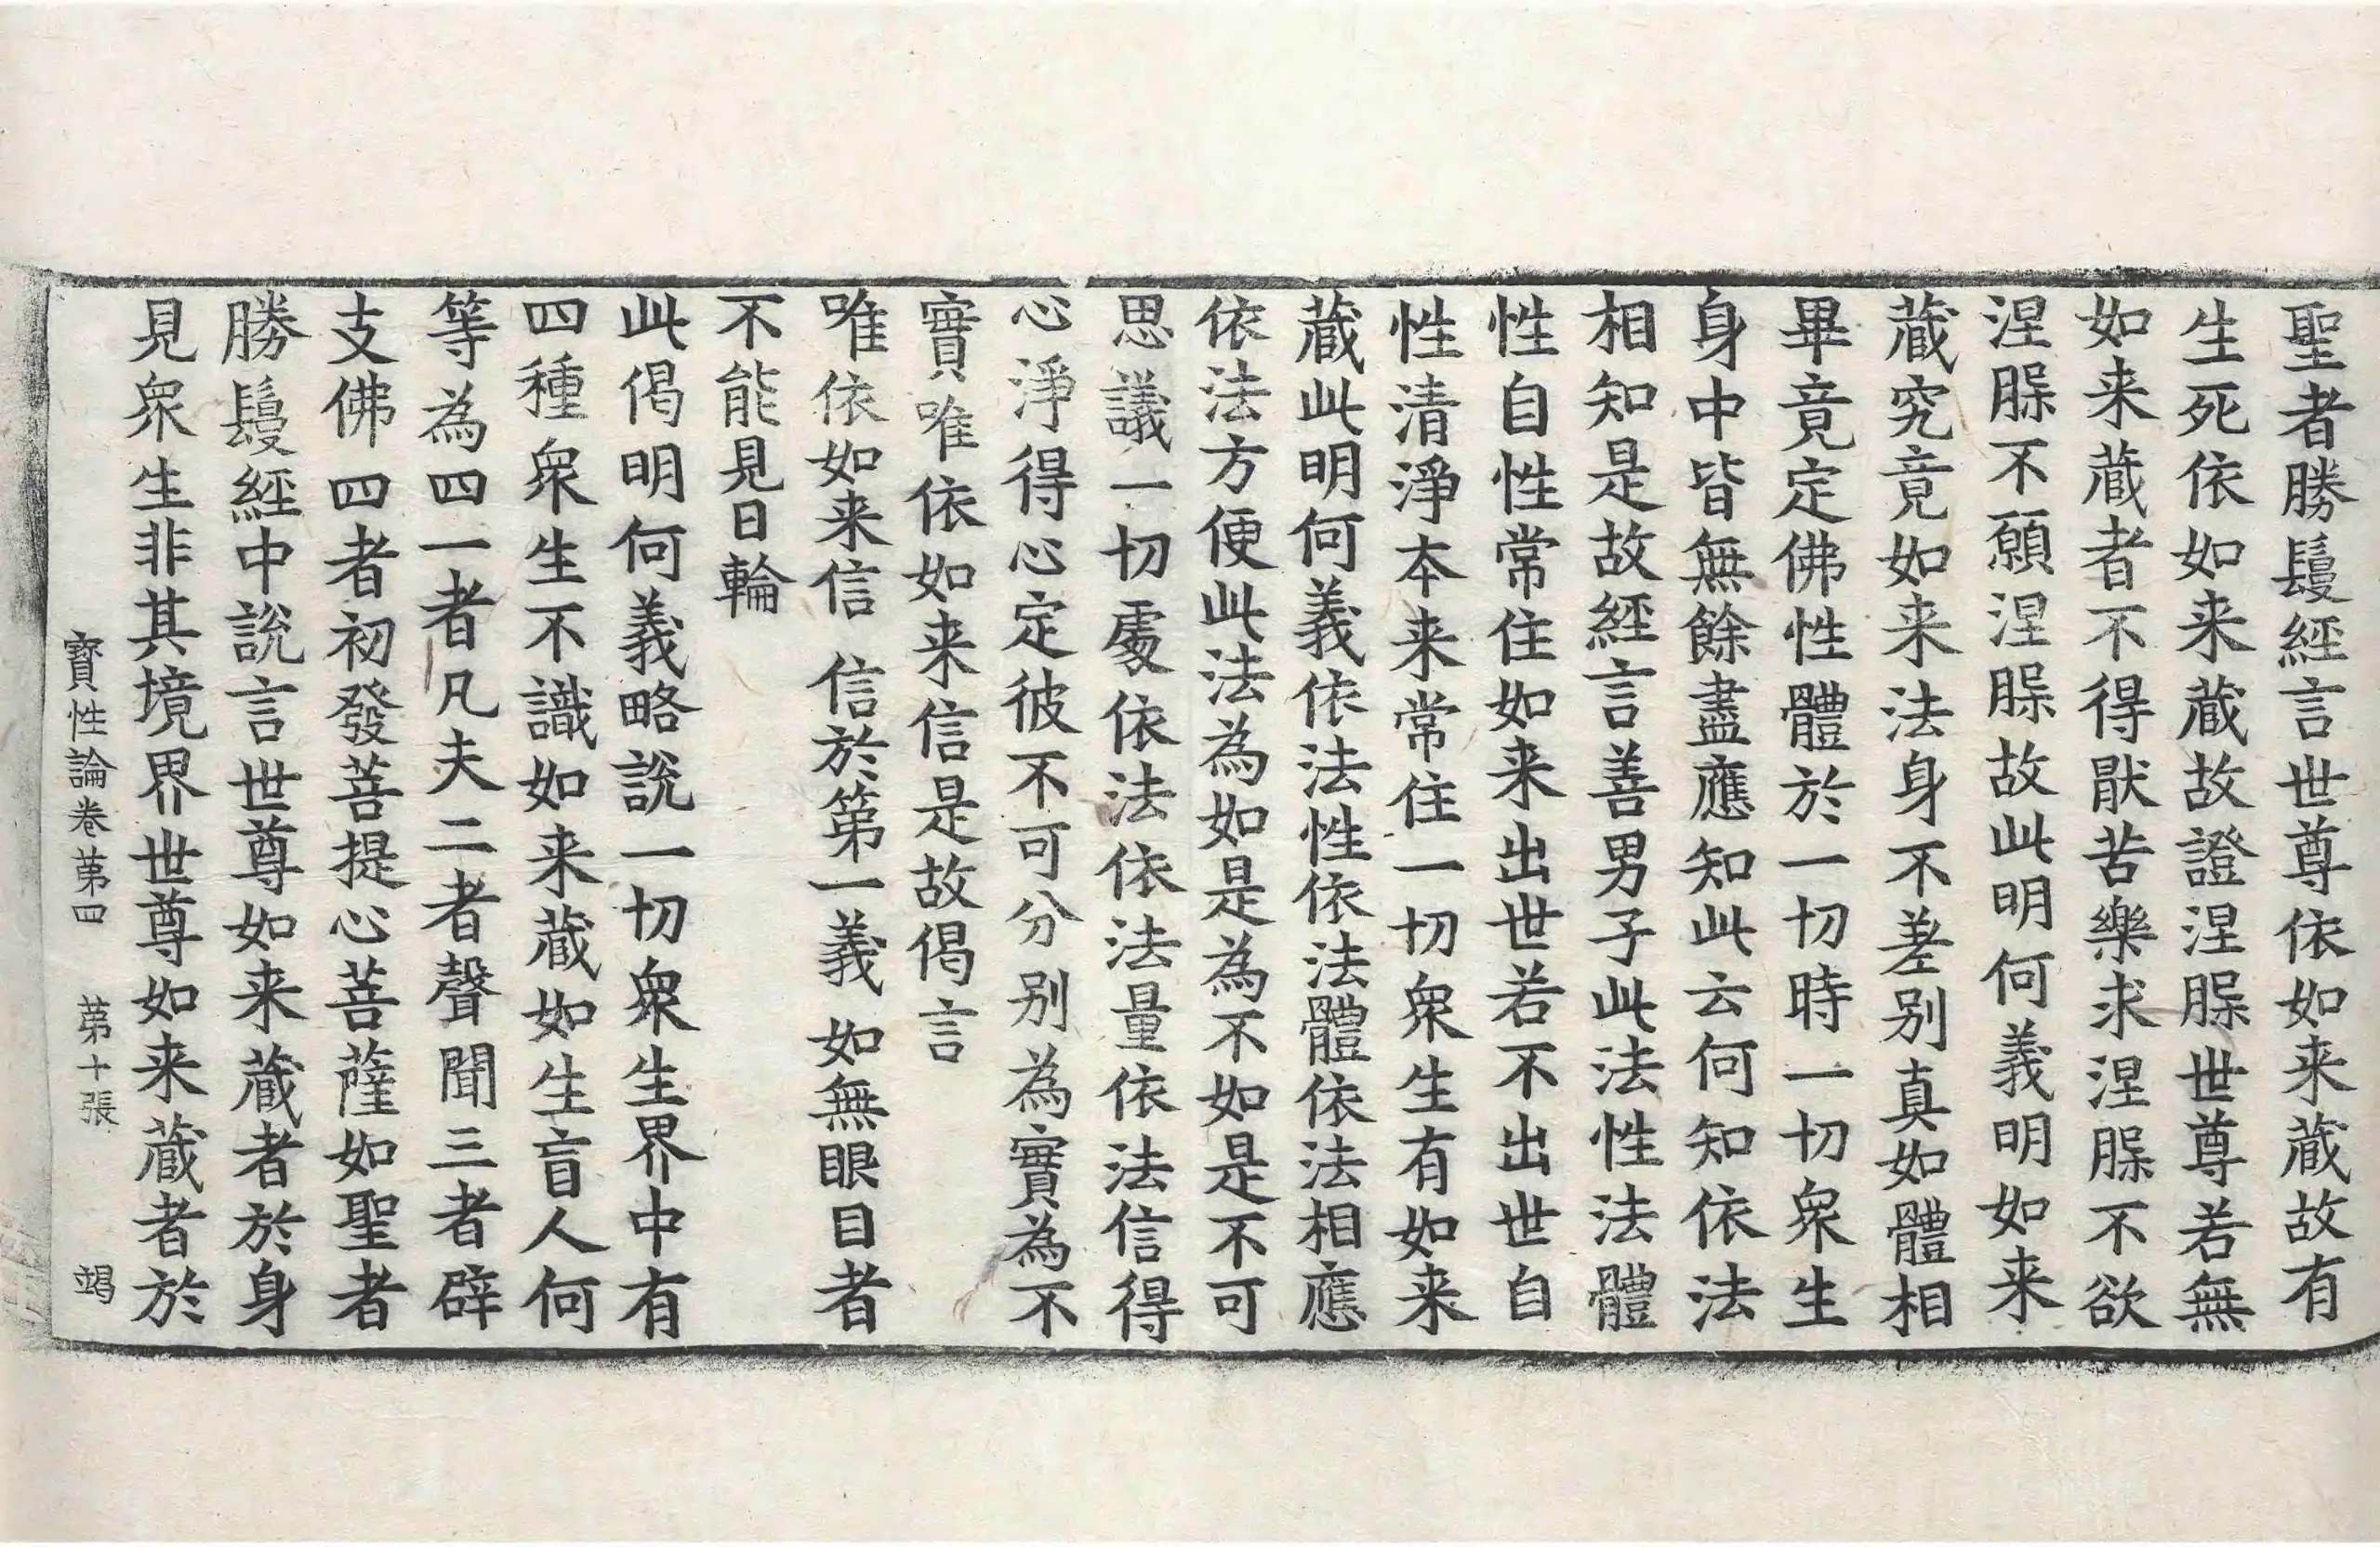 聖者勝鬘經言世尊依如来蔵故有
生死依如来蔵故證涅槃世尊若無
如来蔵者不得猒苦樂求涅槃不欲
涅槃不願涅槃故此明何義明如来
蔵究竟如来法身不差别真如體相
畢竟定佛性體於一切時一切衆生
身中皆無餘盡應知此云何知依法
相知是故經言善男子此法性法體
性自性常住如来出世若不出世自
性清淨本来常住一切衆生有如来
蔵此明何義依法性依法體依法相應
依法方便此法為如是為不如是不可
思議一切處依法依法量依法信得
心淨得心定彼不可分别為實為不
實唯依如来信是故偈言
唯依如来信　信於第一義　如無眼目者
不能見日輪
此偈明何義略說一切衆生界中有
四種衆生不識如来蔵如生盲人何
等為四一者凡夫二者聲聞三者辟
支佛四者初發菩提心菩薩如聖者
勝鬘經中說言世尊如来蔵者於身
見衆生非其境界世尊如来蔵者於
寳性論卷苐四　苐十張　竭